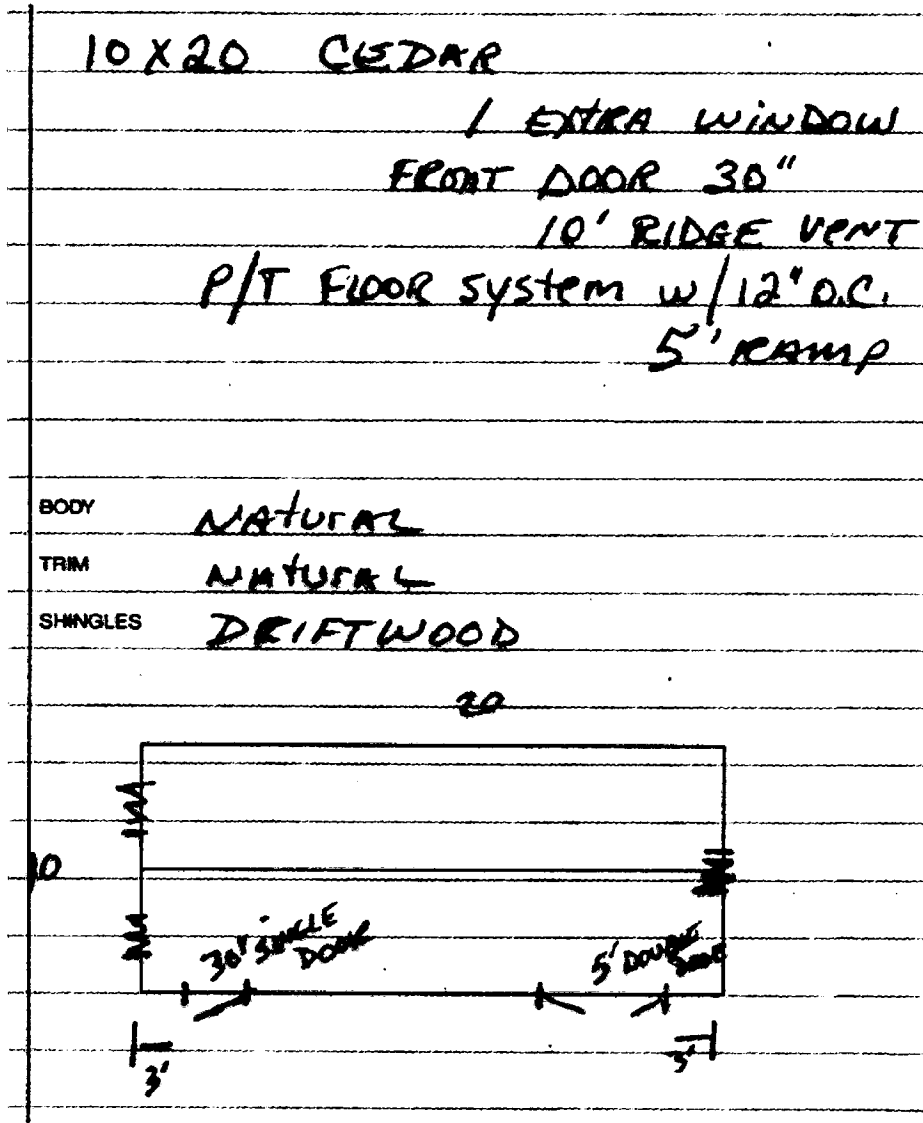 10 X 20 CEDAR
1 EXTRA WINDOW
FRONT DOOR 30"
10' RIDGE VENT
P/T FLOOR system w/12" O.C.
5' RAMP
BODY NATURAL
TRIM NATURAL
SHINGLES DRIFTWOOD
20
10
30" SINGLE
DOOR
5' DOUBLE
DOOR
3'
3'